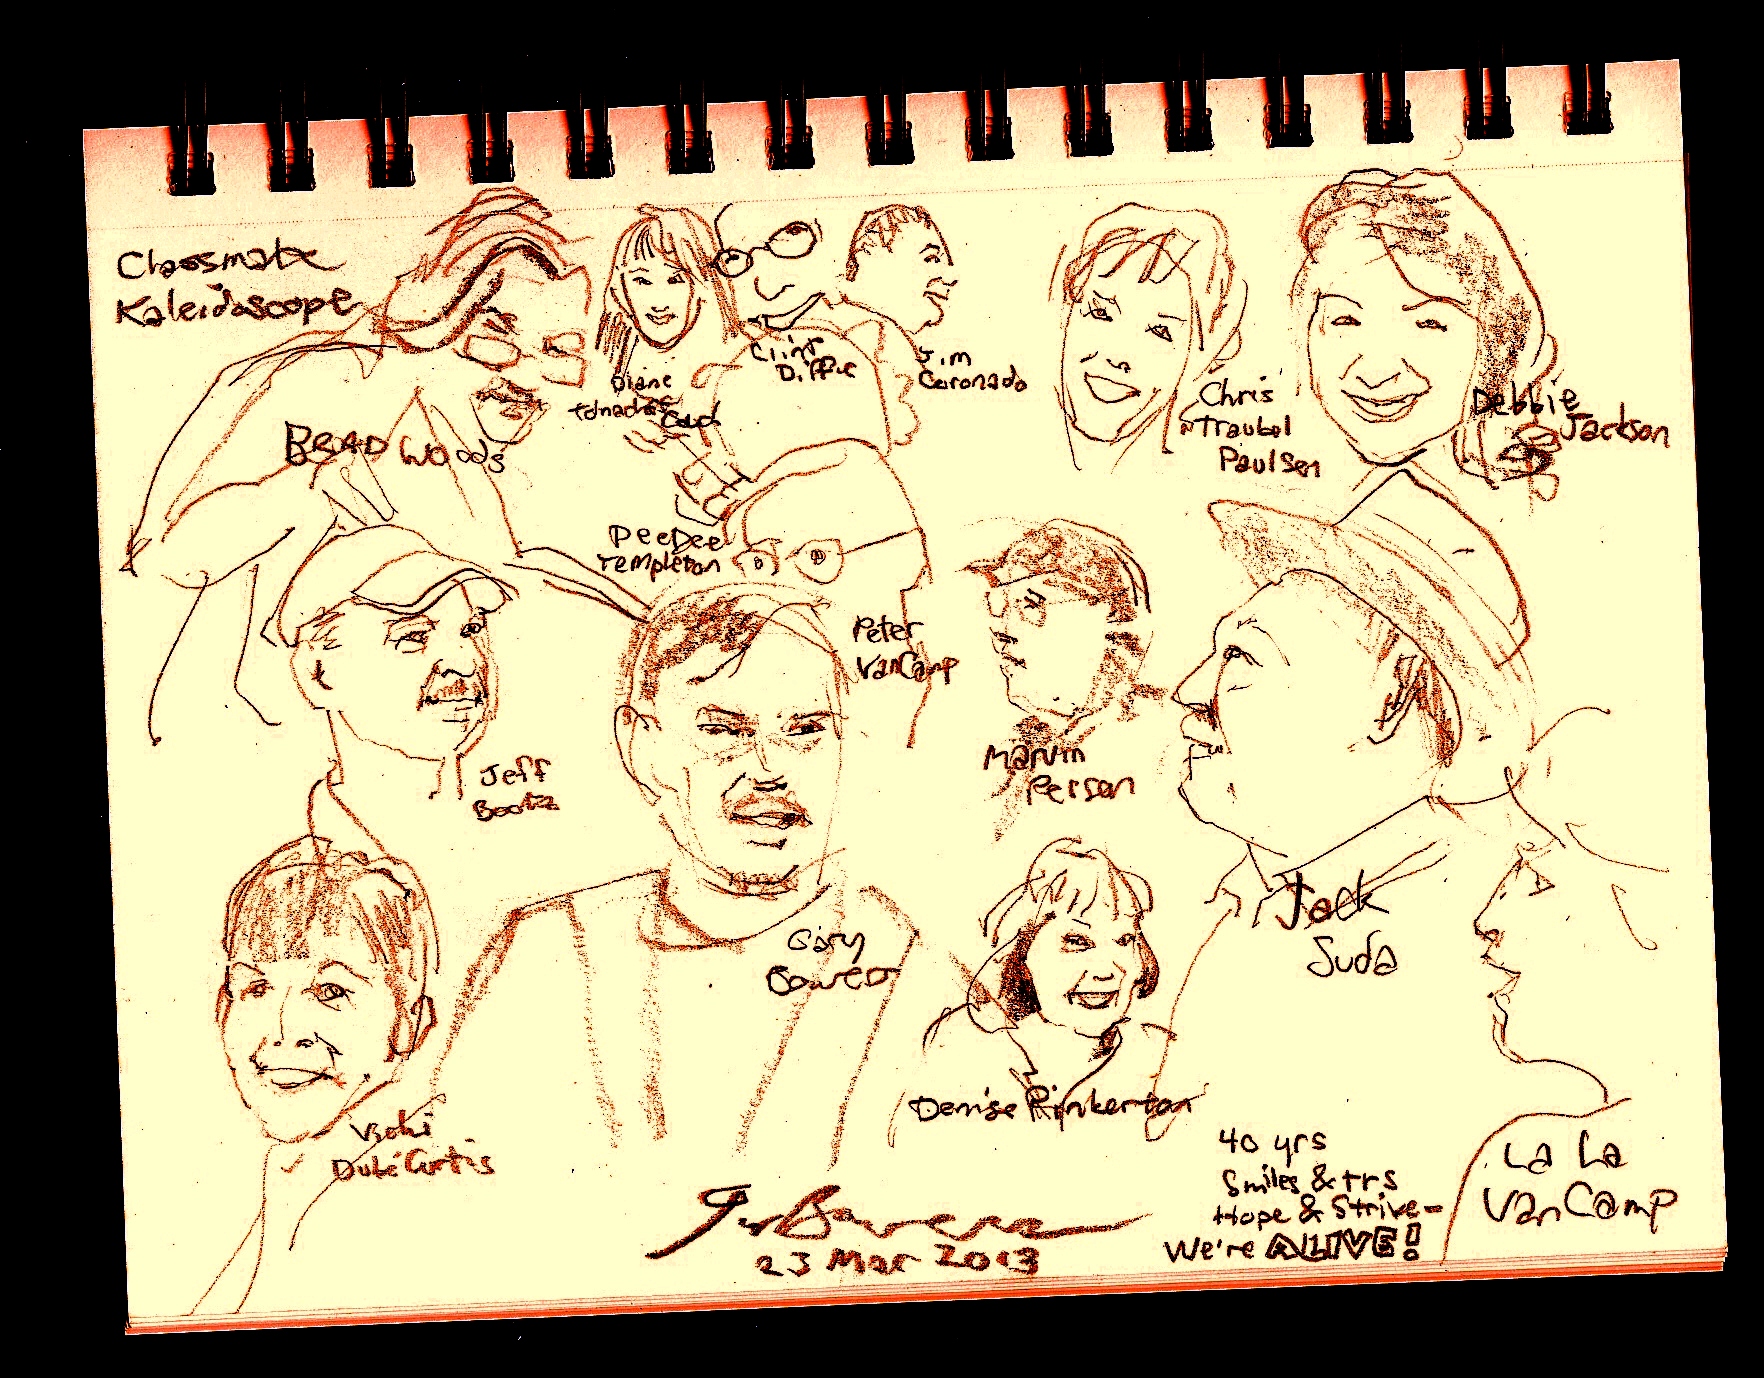 Classmate
Kaleidoscope
BRAD Woods
Diane
Clint
Diffie
Jim
Coronado
Chris
Traubel
Paulsen
Debbie
Jackson
DeeDee
Templeton
Peter
VanCamp
Marvin
Person
Jeff
Jack
Suda
Gary
Bowers
Denise Pinkerton
Vicki
Curtis
40 yrs
Smiles & trs
Hope & Strive-
We're ALIVE!
La La
VanCamp
23 Mar 2013